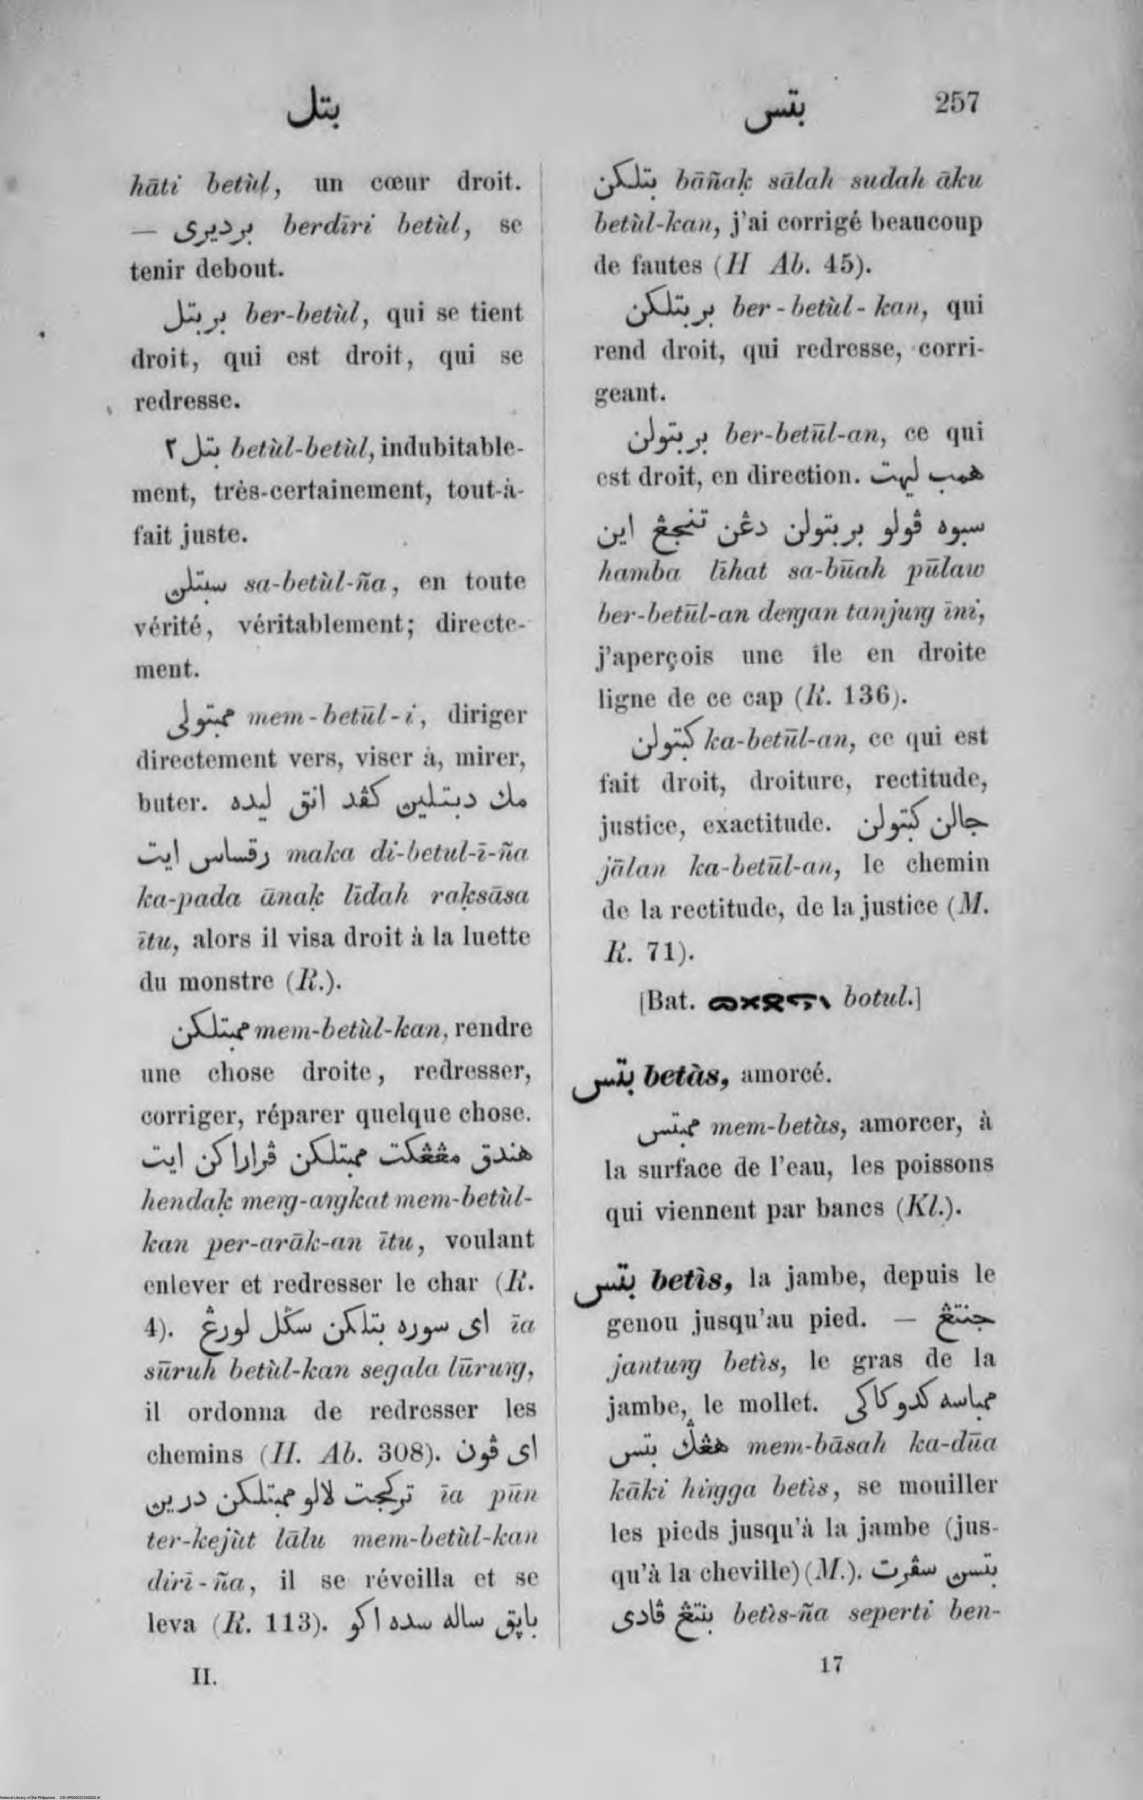 بتل
بتس 257
hāti betùl, un cœur droit.
— برديرى berdīri betùl, se
tenir debout.
بربتل ber-betùl, qui se tient
droit, qui est droit, qui se
redresse.
بتل٢ betùl-betùl, indubitable-
ment, très-certainement, tout-à-
fait juste.
سبتلن sa-betùl-ña, en toute
vérité, véritablement; directe-
ment.
ممبتولى mem-betūl-i, diriger
directement vers, viser à, mirer,
buter. مك دبتلين كڤد انق ليده
رقساس ايت maka di-betul-ī-ña
ka-pada ānaḳ līdah raḳsāsa
ītu, alors il visa droit à la luette
du monstre (R.).
ممبتلكن mem-betùl-kan, rendre
une chose droite, redresser,
corriger, réparer quelque chose.
هندق مڠڠكت ممبتلكن ڤراراكن ايت
hendaḳ meng-angkat mem-betùl-
kan per-arāk-an ītu, voulant
enlever et redresser le char (R.
4). اى سوره بتلكن سڬل لورڠ īa
sūruh betùl-kan segala lūrung,
il ordonna de redresser les
chemins (H. Ab. 308). اى ڤون
تركجت لالو ممبتلكن درين īa pūn
ter-kejùt lālu mem-betùl-kan
dirī-ña, il se réveilla et se
leva (R. 113). باڽق ساله سده اكو
II.
بتلكن bāñaḳ sālah sudah āku
betùl-kan, j'ai corrigé beaucoup
de fautes (H Ab. 45).
بربتلكن ber-betùl-kan, qui
rend droit, qui redresse, corri-
geant.
بربتولن ber-betūl-an, ce qui
est droit, en direction. همب ليهت
سبوه ڤولو بربتولن دڠن تنجڠ اين
hamba līhat sa-būah pūlaw
ber-betūl-an dengan tanjung īni,
j'aperçois une île en droite
ligne de ce cap (R. 136).
كبتولن ka-betūl-an, ce qui est
fait droit, droiture, rectitude,
justice, exactitude. جالن كبتولن
jālan ka-betūl-an, le chemin
de la rectitude, de la justice (M.
R. 71).
[Bat. botul.]
بتس betàs, amorcé.
ممبتس mem-betàs, amorcer, à
la surface de l'eau, les poissons
qui viennent par bancs (Kl.).
بتس betìs, la jambe, depuis le
genou jusqu'au pied. — جنتڠ
jantung betìs, le gras de la
jambe, le mollet. ممباسه كدو كاكى
هڠڬ بتس mem-bāsah ka-dūa
kāki hingga betìs, se mouiller
les pieds jusqu'à la jambe (jus-
qu'à la cheville) (M.). بتسن سڤرت
بنتڠ ڤادى betìs-ña seperti ben-
17